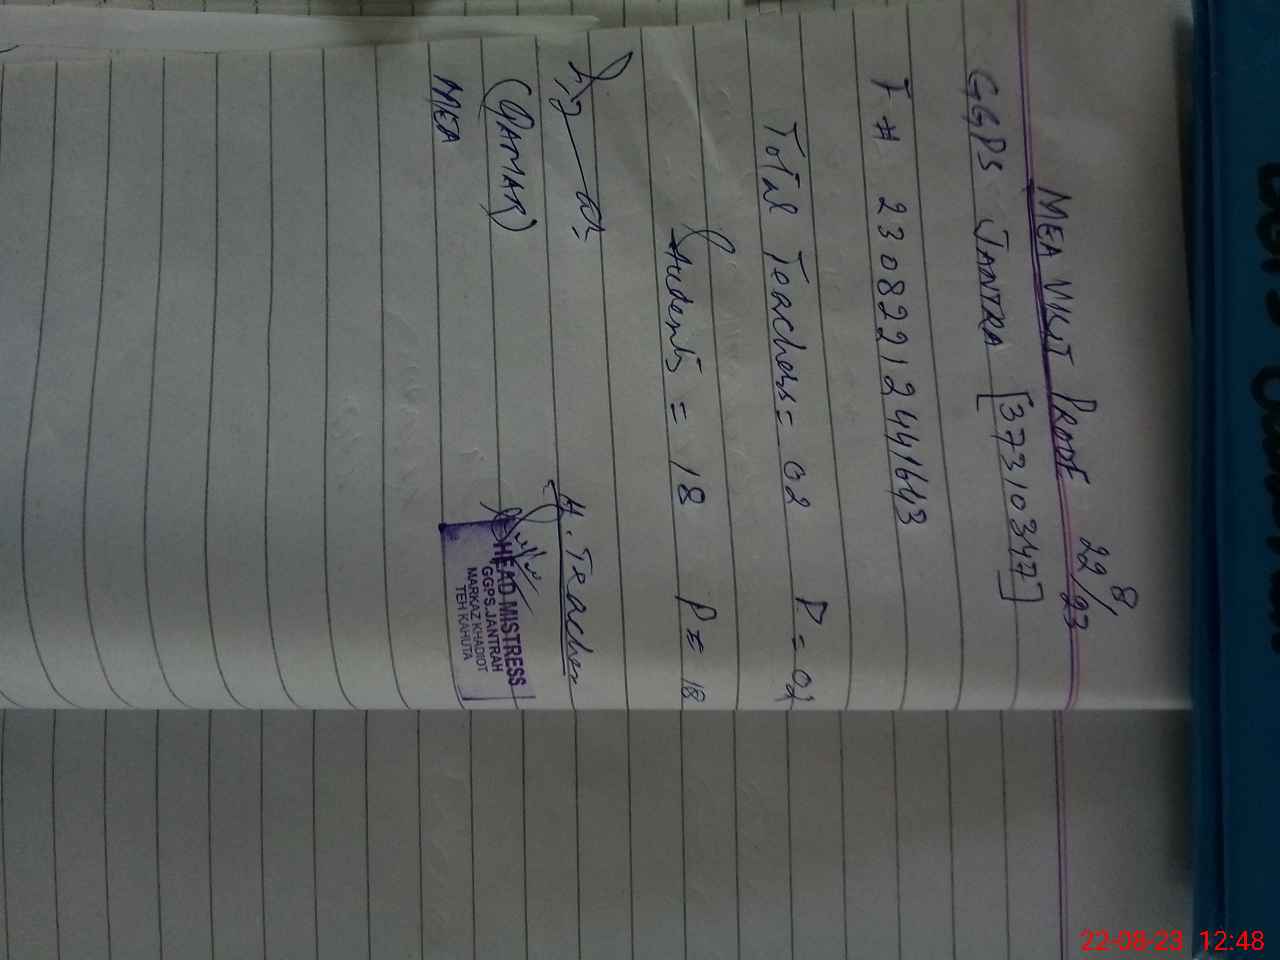 MEA VISIT PROOF 22/8/23
GGPS JANTRA [37310347]
T # 230822124441643
Total Teachers = 02 P = 02
Students = 18 P = 18
H. Teacher
(QAMAR)
MEA
HEAD MISTRESS
GGPS.JANTRAH
MARKAZ KHADIOT
TEH KAHUTA
22-08-23 12:48